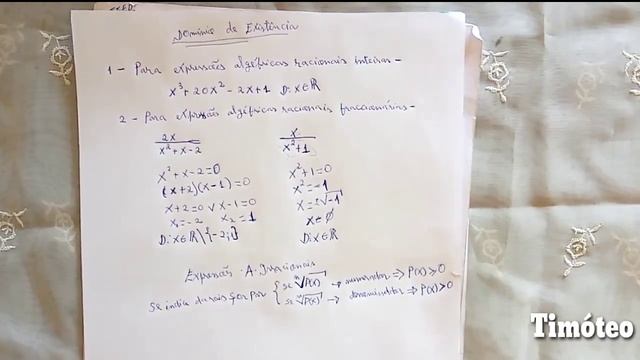 Domínio de Existência
1 - Para expressões algébricas racionais inteiras -
x³ + 20x² - 2x + 1 D: x∈ℝ
2 - Para expressão algébricas racionais fraccionárias -
2x / x² + x - 2
x² + x - 2 = 0
(x+2)(x-1) = 0
x+2=0 ∨ x-1=0
x₁=-2 x₂=1
D: x∈ℝ\{-2;1}
x / x² + 1
x² + 1 = 0
x² = -1
x = ±√-1
x∈∅
D: x∈ℝ
Expressões A. Irracionais
Se índice da raiz for par
{ se ⁿ√P(x) → numerador ⇒ P(x) ≥ 0
se ⁿ√P(x) → denominador ⇒ P(x) > 0
Timóteo